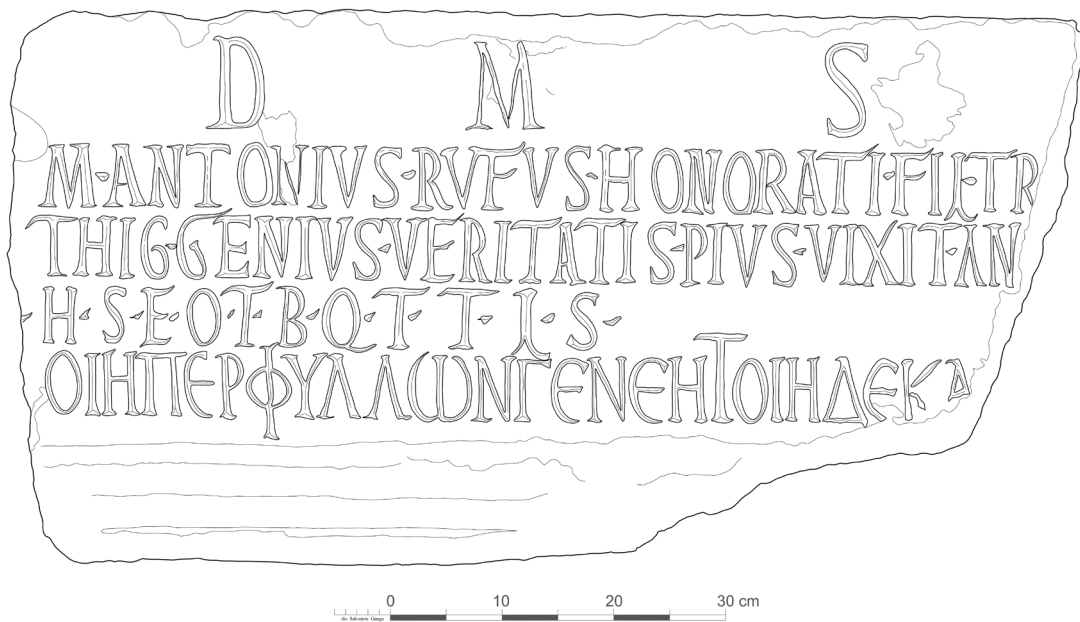 D M S
M·ANTONIVS·RVFVS·HONORATI·FIL·TR
THIG·GENIVS·VERITATIS·PIVS·VIXIT·AN
·H·S·E·O·T·B·Q·T·T·L·S·
ΟΙΗΠΕΡΦΥΛΛΩΝΓΕΝΕΗΤΟΙΗΔΕΚΑ
0 10 20 30 cm
dis. Salvatore Ganga